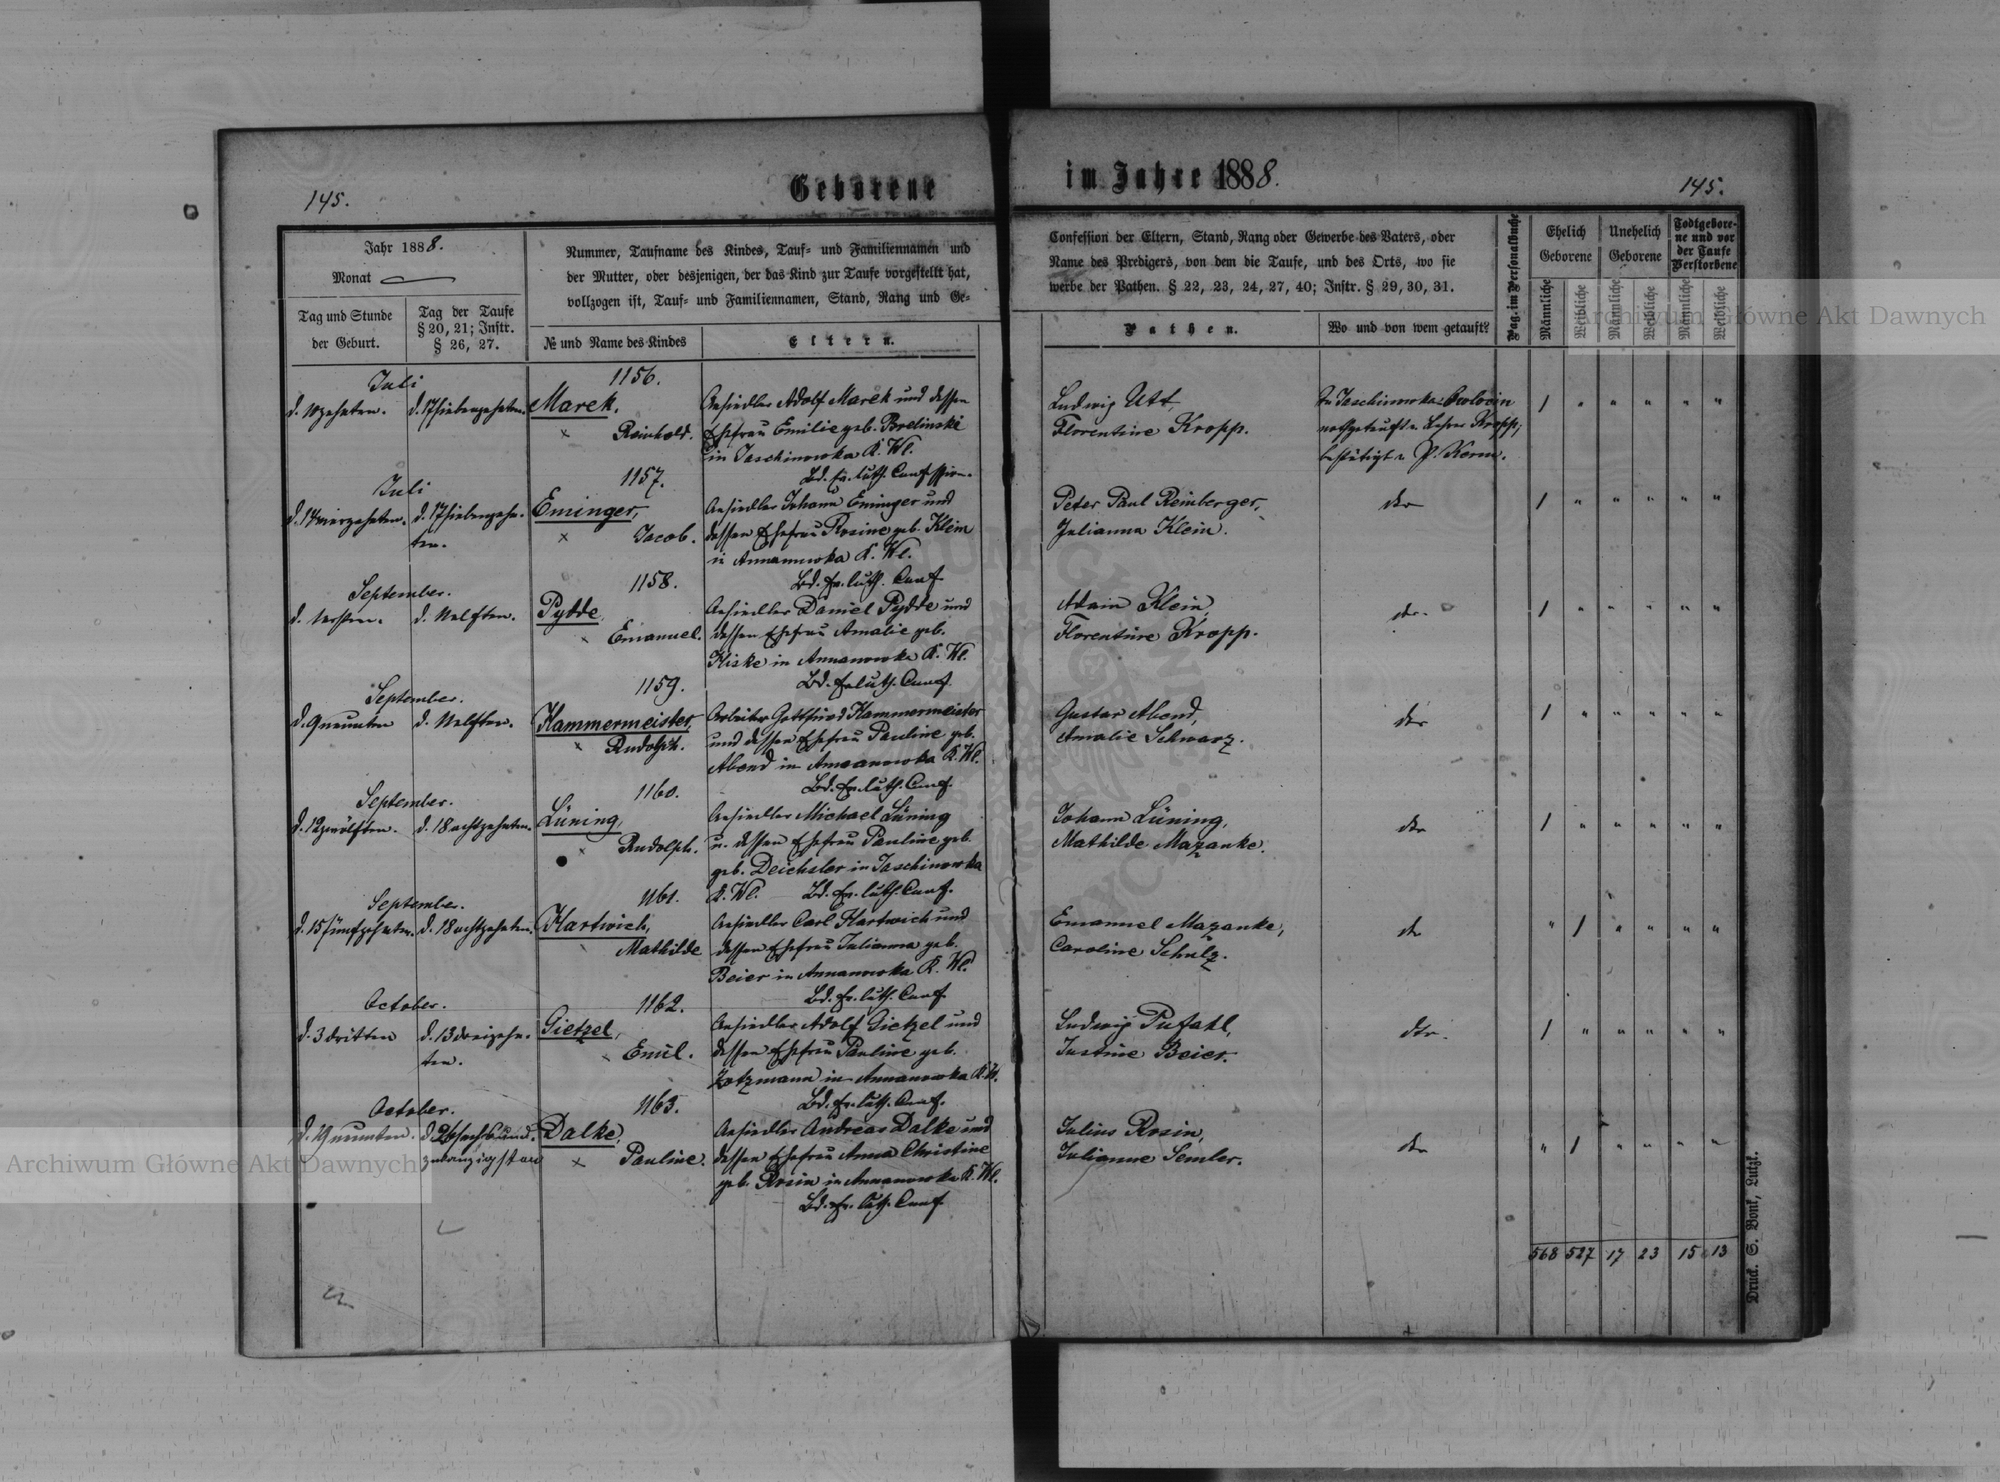 145.
Geborene
im Jahre 1888.
145.
Jahr 1888.
Monat
Tag und Stunde
der Geburt.
Tag der Taufe
§ 20, 21; Instr.
§ 26, 27.
Nummer, Taufname des Kindes, Tauf- und Familiennamen und
der Mutter, oder desjenigen, der das Kind zur Taufe vorgestellt hat,
vollzogen ist, Tauf- und Familiennamen, Stand, Rang und Ge-
№ und Name des Kindes
Eltern.
Confession der Eltern, Stand, Rang oder Gewerbe des Vaters, oder
Name des Predigers, von dem die Taufe, und des Orts, wo sie
werbe der Pathen. § 22, 23, 24, 27, 40; Instr. § 29, 30, 31.
Pathen.
Wo und von wem getauft?
Pag. im Personalbuche
Ehelich
Geborene
Unehelich
Geborene
Todtgebore-
ne und vor
der Taufe
Verstorbene
Männliche
Weibliche
Männliche
Weibliche
Männliche
Weibliche
Juli
d. 10 zehnten.
d. 17 siebenzehnten.
1156.
Marek,
Reinhold.
Ansiedler Adolf Marek und dessen
Ehefrau Emilie geb.
in Jaschinowka K. Wl.
Bd. Ev. luth. Confession.
Ludwig Utt,
Florentine Kropp.
In Jaschinowka
nothgetauft v. Lehrer Kropp,
bestätigt v. P. Kerm.
1 " " " " "
Juli
d. 14 vierzehnten.
d. 17 siebenzehn-
ten.
1157.
Eminger,
Jacob.
Ansiedler Johann Eminger und
dessen Ehefrau Rosine geb. Klein
in Annanowka K. Wl.
Bd. Ev. luth. Conf.
Peter Paul Remberger,
Julianna Klein.
dto
1 " " " " "
September.
d. 1 ersten.
d. 11 elften.
1158.
Pydde,
Emanuel.
Ansiedler Daniel Pydde und
dessen Ehefrau Amalie geb.
Kiske in Annanowka K. Wl.
Bd. Ev. luth. Conf.
Adam Klein,
Florentine Kropp.
dto.
1 " " " " "
September.
d. 9 neunten
d. 11 elften.
1159.
Hammermeister,
Rudolph.
Arbeiter Gottfried Hammermeister
und dessen Ehefrau Pauline geb.
Abend in Annanowka K. Wl.
Bd. Ev. luth. Conf.
Gustav Abend,
Amalie Schwarz.
dto
1 " " " " "
September.
d. 12 zwölften.
d. 18 achtzehnten.
1160.
Lüning,
Rudolph.
Ansiedler Michael Lüning
u. dessen Ehefrau Pauline geb.
geb. Deichsler in Jaschinowka
K. Wl. Bd. Ev. luth. Conf.
Johann Lüning,
Mathilde Mazanke.
dto
1 " " " " "
September.
d. 15 fünfzehnten.
d. 18 achtzehnten.
1161.
Hartwich,
Mathilde
Ansiedler Carl Hartwich und
dessen Ehefrau Julianna geb.
Beier in Annanowka K. Wl.
Bd. Ev. luth. Conf.
Emanuel Mazanke,
Caroline Schulz.
dto
" 1 " " " "
October.
d. 3 dritten
d. 13 dreizehn-
ten.
1162.
Gietzel,
Emil.
Ansiedler Adolf Gietzel und
dessen Ehefrau Pauline geb.
Zotzmann in Annanowka K. W.
Bd. Ev. luth. Conf.
Ludwig Pufahl,
Justine Beier.
dto.
1 " " " " "
October.
d. 9 neunten.
d. 26 sechsund-
zwanzigsten
1163.
Dalke,
Pauline.
Ansiedler Andreas Dalke und
dessen Ehefrau Anna Christine
geb. Rosin in Annanowka K. Wl.
Bd. Ev. luth. Conf.
Julius Rosin,
Julianne Semler.
dto
" 1 " " " "
568 527 17 23 15 13
Druck. S. Bonk, Lutzk.
Archiwum Główne Akt Dawnych
Archiwum Główne Akt Dawnych